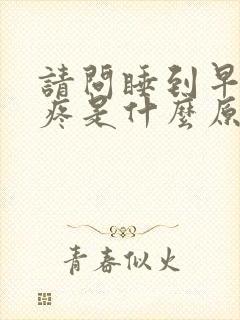 請問睡到早
疼是什麼原
青春似火